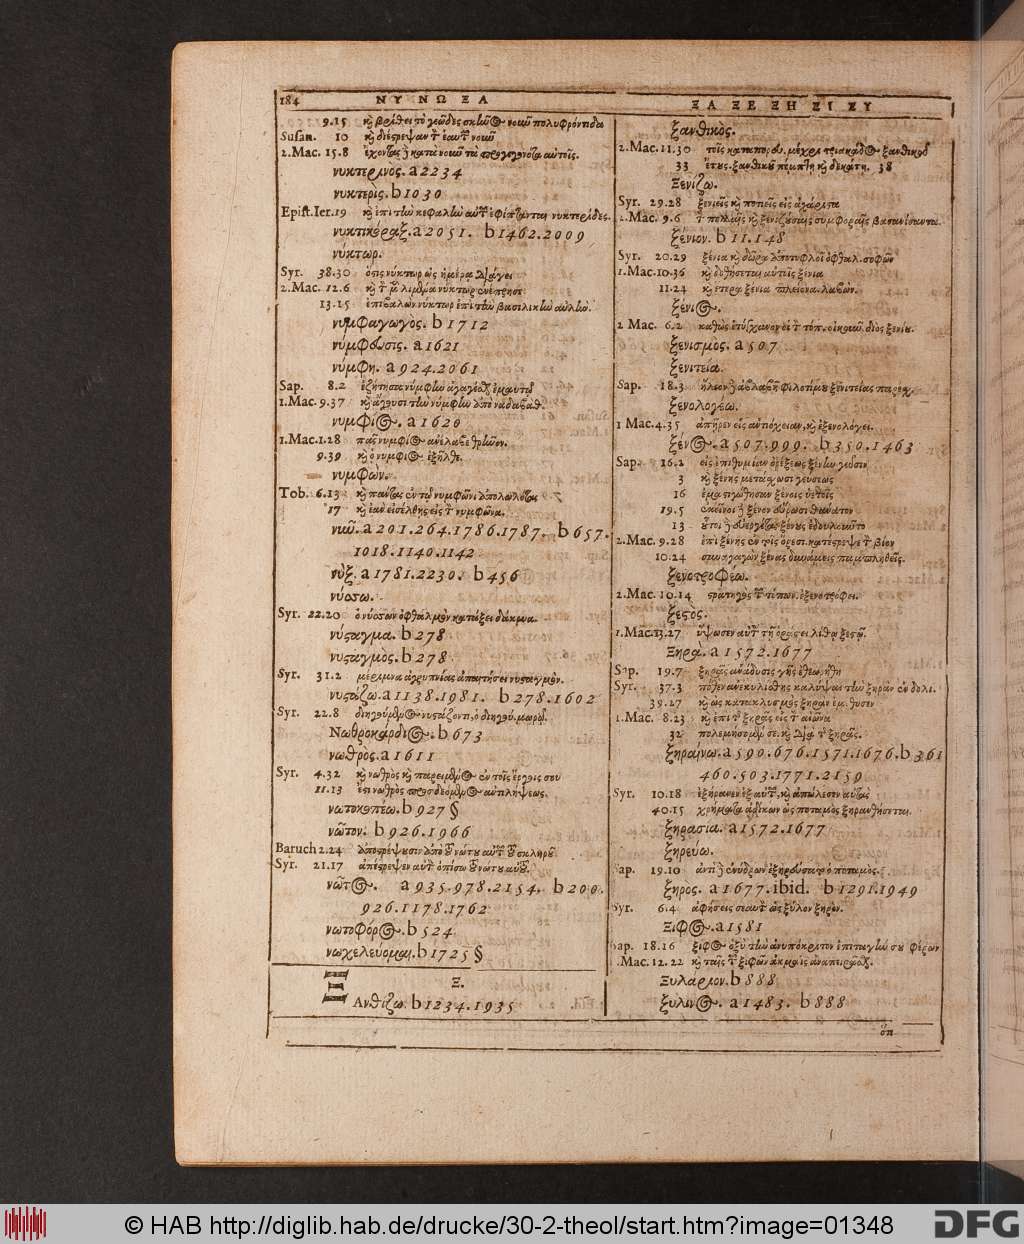 184 ΝΥ ΝΩ ΞΑ
9.15 καὶ βρίθει τὸ γεῶδες σκῆνος νοῦν πολυφρόντιδα
Susan. 10 καὶ διέστρεψαν τὸν ἑαυτῶν νοῦν
2.Mac. 15.8 ἔχοντας κατὰ νοῦν τὰ προγεγονότα αὐτοῖς.
νυκτερινος. a 2234
νυκτερὶς. b 1030
Epist. Ier. 19 καὶ ἐπὶ τὴν κεφαλὴν αὐτῶν ἐφίπτανται νυκτερίδες.
νυκτικόραξ. a 2051. b 1462.2009
νύκτωρ.
Syr. 38.30 ὅστις νύκτωρ ὡς ἡμέρα διάγει
2.Mac. 12.6 καὶ τὸν μὲν λιμένα νύκτωρ ἐνέπρησε
13.15 ἐπιβαλὼν νύκτωρ ἐπὶ τὴν βασιλικὴν αὐλὴν.
νυμφαγωγὸς. b 1712
νύμφευσις. a 1621
νύμφη. a 924.2061
Sap. 8.2 ἐζήτησα νύμφην ἀγαγέσθαι ἐμαυτῷ
1.Mac. 9.37 καὶ ἄγουσι τὴν νύμφην ἀπὸ ναδαβαθ.
νυμφίος. a 1620
1.Mac. 1.28 πᾶς νυμφίος ἀνέλαβε θρῆνον.
9.39 καὶ ὁ νυμφίος ἐξῆλθε.
νυμφὼν.
Tob. 6.13 καὶ πάντας ἐν τῷ νυμφῶνι ἀπολωλότας
17 καὶ ἐὰν εἰσέλθῃς εἰς τὸν νυμφῶνα.
νῦν. a 201.264.1786.1787. b 657.
1018.1140.1142
νὺξ. a 1781.2230. b 456
νύσσω.
Syr. 22.20 ὁ νύσσων ὀφθαλμὸν κατάξει δάκρυα.
νύσταγμα. b 278
νυσταγμὸς. b 278
Syr. 31.2 μέριμνα ἀγρυπνίας ἀπαιτήσει νυσταγμὸν.
νυστάζω. a 1138.1981. b 278.1602
Syr. 22.8 διηγούμενος νυστάζοντι, ὁ διηγού. μωρῷ.
Νωθροκάρδιος. b 673
νωθρὸς. a 1611
Syr. 4.32 καὶ νωθρὸς καὶ παρειμένος ἐν τοῖς ἔργοις σου
11.13 ἔστι νωθρὸς προσδεόμενος ἀντιλήψεως.
νωτοκοπέω. b 927 §
νῶτον. b 926.1966
Baruch 2.24 ἀποστρέψουσιν ἀπὸ τοῦ νώτου αὐτῶν τοῦ σκληροῦ
Syr. 21.17 ἀπέστρεψεν αὐτὸν ὀπίσω τοῦ νώτου αὐτοῦ.
νῶτος. a 935.978.2154. b 200.
926.1178.1762
νωτοφόρος. b 524
νωχελεύομαι. b 1725 §
Ξ.
ΞΑνθίζω. b 1234.1935
ΞΑ ΞΕ ΞΗ ΞΙ ΞΥ
ξανθικὸς.
2.Mac. 11.30 τοῖς καταπορευ. μέχρι τριακάδος ξανθικοῦ
33 ἔτους. ξανθικοῦ πέμπτῃ καὶ δεκάτῃ. 38
Ξενίζω.
Syr. 29.28 ξενιεῖς καὶ ποτιεῖς εἰς ἀχάριστα
2.Mac. 9.6 τὸν πολλαῖς καὶ ξενιζούσαις συμφοραῖς βασανίσαντα
ξένιον. b 11.148
Syr. 20.29 ξένια καὶ δῶρα ἀποτυφλοῖ ὀφθαλ. σοφῶν
1.Mac. 10.36 καὶ δοθήσεται αὐτοῖς ξένια
11.24 καὶ ἕτερα ξένια πλείονα. λαβὼν.
ξένιος.
2 Mac. 6.2 καθὼς ἐτύγχανον οἱ τὸν τόπον οἰκοῦν. διὸς ξενίου.
ξενισμὸς. a 507
ξενιτεία.
Sap. 18.3 ἥλιον ἀβλαβῆ φιλοτίμου ξενιτείας παρέχ.
ξενολογέω.
1 Mac. 4.35 ἀπῆρεν εἰς ἀντιόχειαν, καὶ ἐξενολόγει.
ξένος. a 507.999. b 350.1463
Sap. 16.2 εἰς ἐπιθυμίαν ὀρέξεως ξένην γεῦσιν
3 καὶ ξένης μετάσχωσι γεύσεως
16 ἐμαστιγώθησαν ξένοις ὑετοῖς
19.5 ἐκεῖνοι ξένον εὕρωσι θάνατον
13 οὗτοι εὐεργέτας ξένους ἐδουλοῦντο
2.Mac. 9.28 ἐπὶ ξένης ἐν τοῖς ὄρεσι. κατέστρεψε τὸν βίον
10.24 συναγαγὼν ξένας δυνάμεις παμπληθεῖς.
ξενοτροφέω.
2.Mac. 10.14 στρατηγὸς τῶν τόπων. ἐξενοτρόφει.
ξεστὸς.
1.Mac. 13.27 ὕψωσεν αὐτὸν τῇ ὁράσει λίθῳ ξεστῷ.
Ξηρα. a 1572.1677
Sap. 19.7 ξηρᾶς ἀνάδυσις γῆς ἐθεωρήθη
Syr. 37.3 πόθεν ἀνεκυλίσθης καλύψαι τὴν ξηρὰν ἐν δολι.
39.27 καὶ ὡς κατακλυσμὸς ξηρὰν ἐμέθυσεν
1.Mac. 8.23 καὶ ἐπὶ τῆς ξηρᾶς εἰς τὸν αἰῶνα
32 πολεμήσομέν σε. καὶ διὰ τῆς ξηρᾶς.
ξηραίνω. a 590.676.1571.1676. b 361
460.503.1771.2159
Syr. 10.18 ἐξήρανεν ἐξ αὐτῶν, καὶ ἀπώλεσεν αὐτοὺς
40.15 χρήματα ἀδίκων ὡς ποταμὸς ξηρανθήσονται
ξηρασια. a 1572.1677
ξηρεύω.
Sap. 19.10
ξηρος. a 1677.ibid. b 1291.1949
Syr. 6.4 ἀφήσεις σεαυτὸν ὡς ξύλον ξηρὸν.
Ξιφος. a 1581
Sap. 18.16 ξίφος ὀξὺ τὴν ἀνυπόκριτον ἐπιταγήν σου φέρων
2.Mac. 12.22 καὶ ταῖς τῶν ξιφῶν ἀκμαῖς ἀναπείρεσθαι.
Ξυλαριον. b 888
ξυλινος. a 1483. b 888
ὅπ
© HAB http://diglib.hab.de/drucke/30-2-theol/start.htm?image=01348
DFG